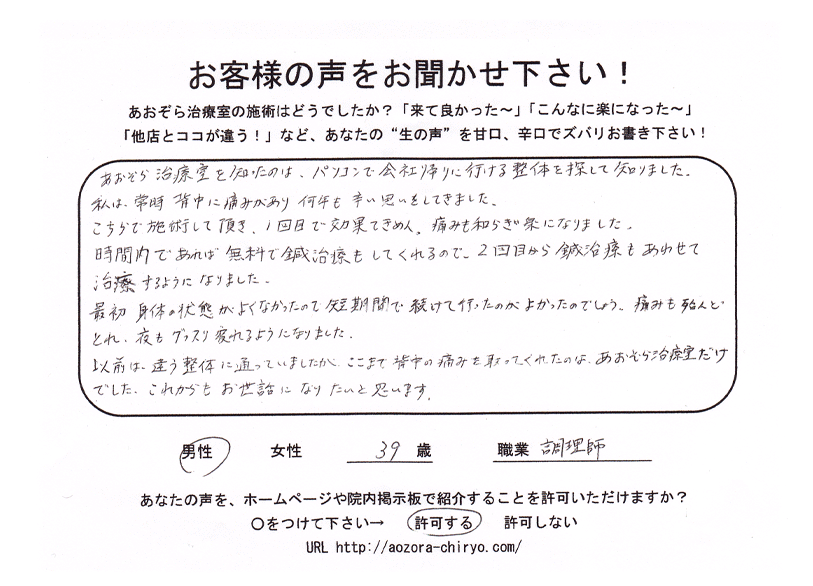 お客様の声をお聞かせ下さい！
あおぞら治療室の施術はどうでしたか？「来て良かった～」「こんなに楽になった～」
「他店とココが違う！」など、あなたの“生の声”を甘口、辛口でズバリお書き下さい！
あおぞら治療室を知ったのは、パソコンで会社帰りに行ける整体を探して知りました。
私は、常時 背中に痛みがあり 何年も 辛い思いをしてきました。
こちらで施術して頂き、1回目で効果てきめん、痛みも和らぎ楽になりました。
時間内であれば 無料で鍼治療もしてくれるので、2回目から鍼治療もあわせて
治療するようになりました。
最初 身体の状態がよくなかったので短期間で続けて行ったのがよかったのでしょう。痛みも殆んど
とれ、夜もグッスリ寝れるようになりました。
以前は、違う整体に通っていましたが、ここまで背中の痛みを取ってくれたのは、あおぞら治療室だけ
でした。これからもお世話になりたいと思います。
男性 女性 39 歳 職業 調理師
あなたの声を、ホームページや院内掲示板で紹介することを許可いただけますか？
○をつけて下さい→ 許可する 許可しない
URL http://aozora-chiryo.com/